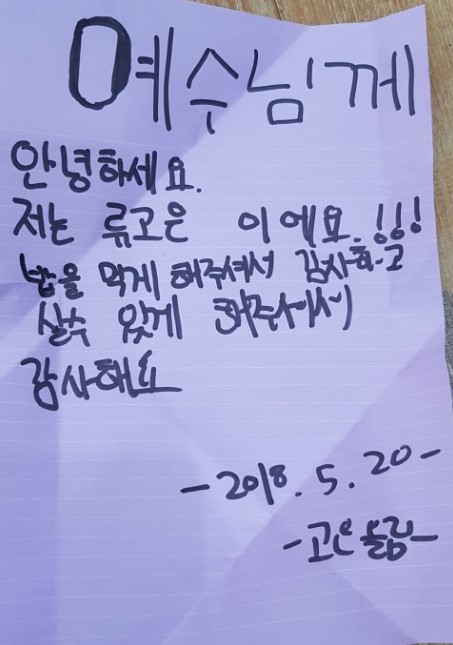 예수님께
안녕하세요.
저는 류고은 이에요.!!!
밥을 먹게 해주셔서 감사하고
살수 있게 해주셔서
감사해요
-2018.5.20-
-고은올림-